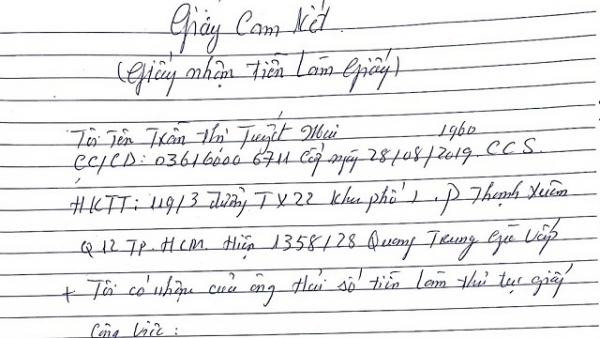 Giấy Cam Kết
(Giấy nhận tiền Làm Giấy)
Tôi Tên Trần Thị Tuyết Mai 1960
CC/CD: 036160006711 Cấp ngày 28/08/2019 CCS
HKTT: 119/3 đường TX22 Khu phố 1, P Thạnh Xuân
Q 12 TP. HCM. Hiện 1358/28 Quang Trung Gò Vấp
+ Tôi có nhận của ông Hải số tiền làm thủ tục giấy
Công Việc: